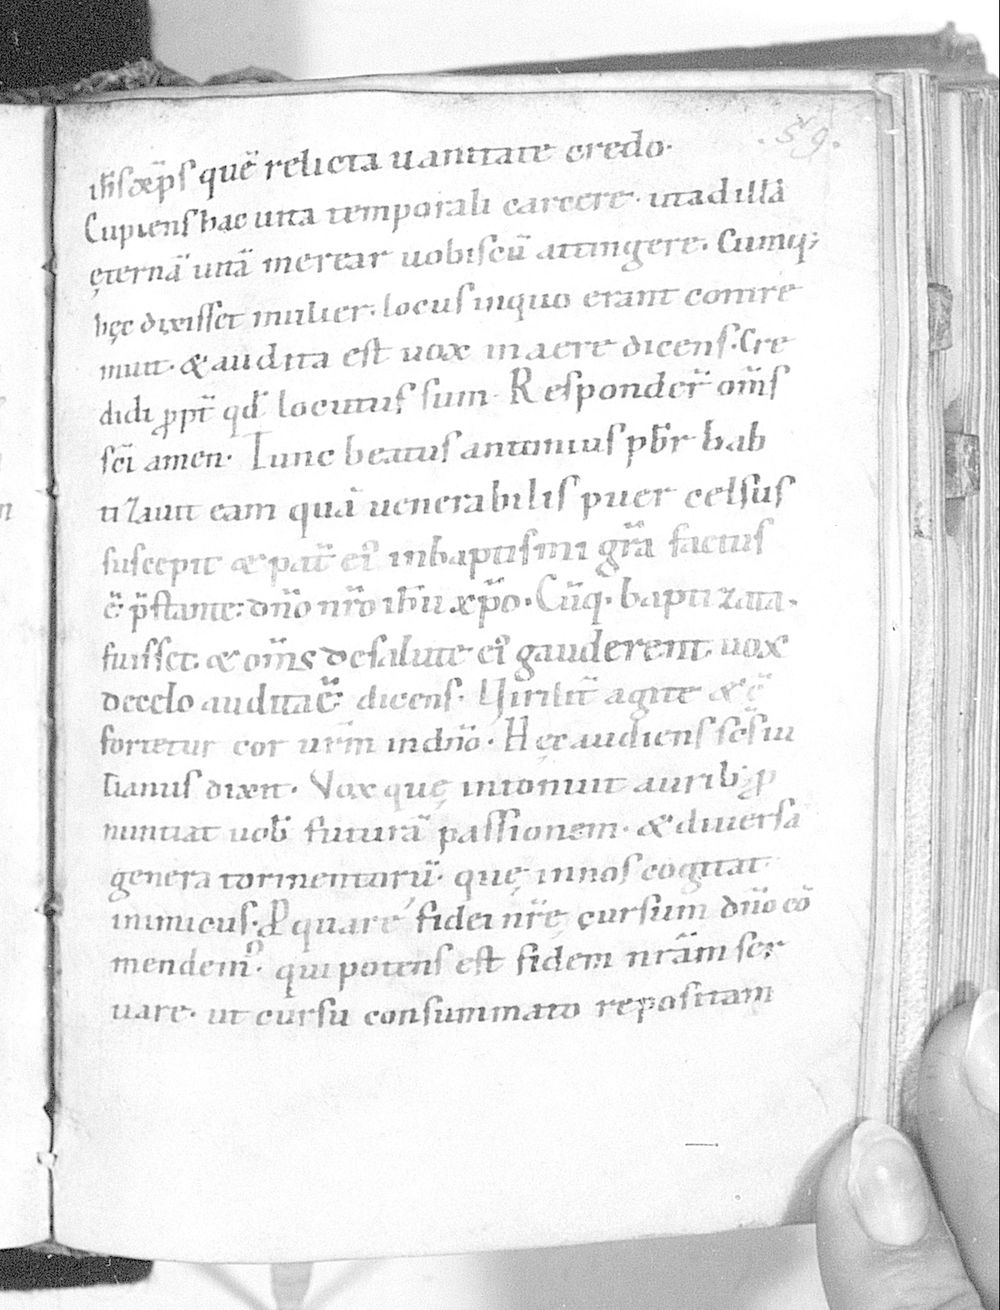 .59.
ih̄s xp̄s quē relicta uanitate credo.
Cupiens hac uita temporali carcere. ut ad illā
ęternā uitā merear uobiscū attingere. Cumq;
hęc dixisset mulier. locus in quo erant contre
muit. & audita est uox in aere dicens. Cre
didi ꝓpt̄ qd̄ locutus sum. Responder̄ om̄s
sc̄i amen. Tunc beatus antonius pb̄r bab
tizauit eam quā uenerabilis puer celsus
suscepit & pat̄ ei᾽ in baptismi gr̄a factus
ē. p̄stante. dn̄o nr̄o ih̄u xp̄o. Cūq. baptizata.
fuisset. & om̄s de salute ei᾽ gauderent. uox
de celo audita ē. dicens. Uirilit̄ agite & c̄
fortetur cor ur̄m in dn̄o. Hęc audiens sc̄s iu
lianus dixit. Vox quę intonuit aurib; ꝓ
nuntiat uob̄ futurā passionem. & diuersa
genera tormentorū. quę in nos cogitat
inimicus. Quare fidei nr̄ę cursum dn̄o cō
mendem᾽. qui potens est fidem nr̄am ser
uare. ut cursu consummato repositam